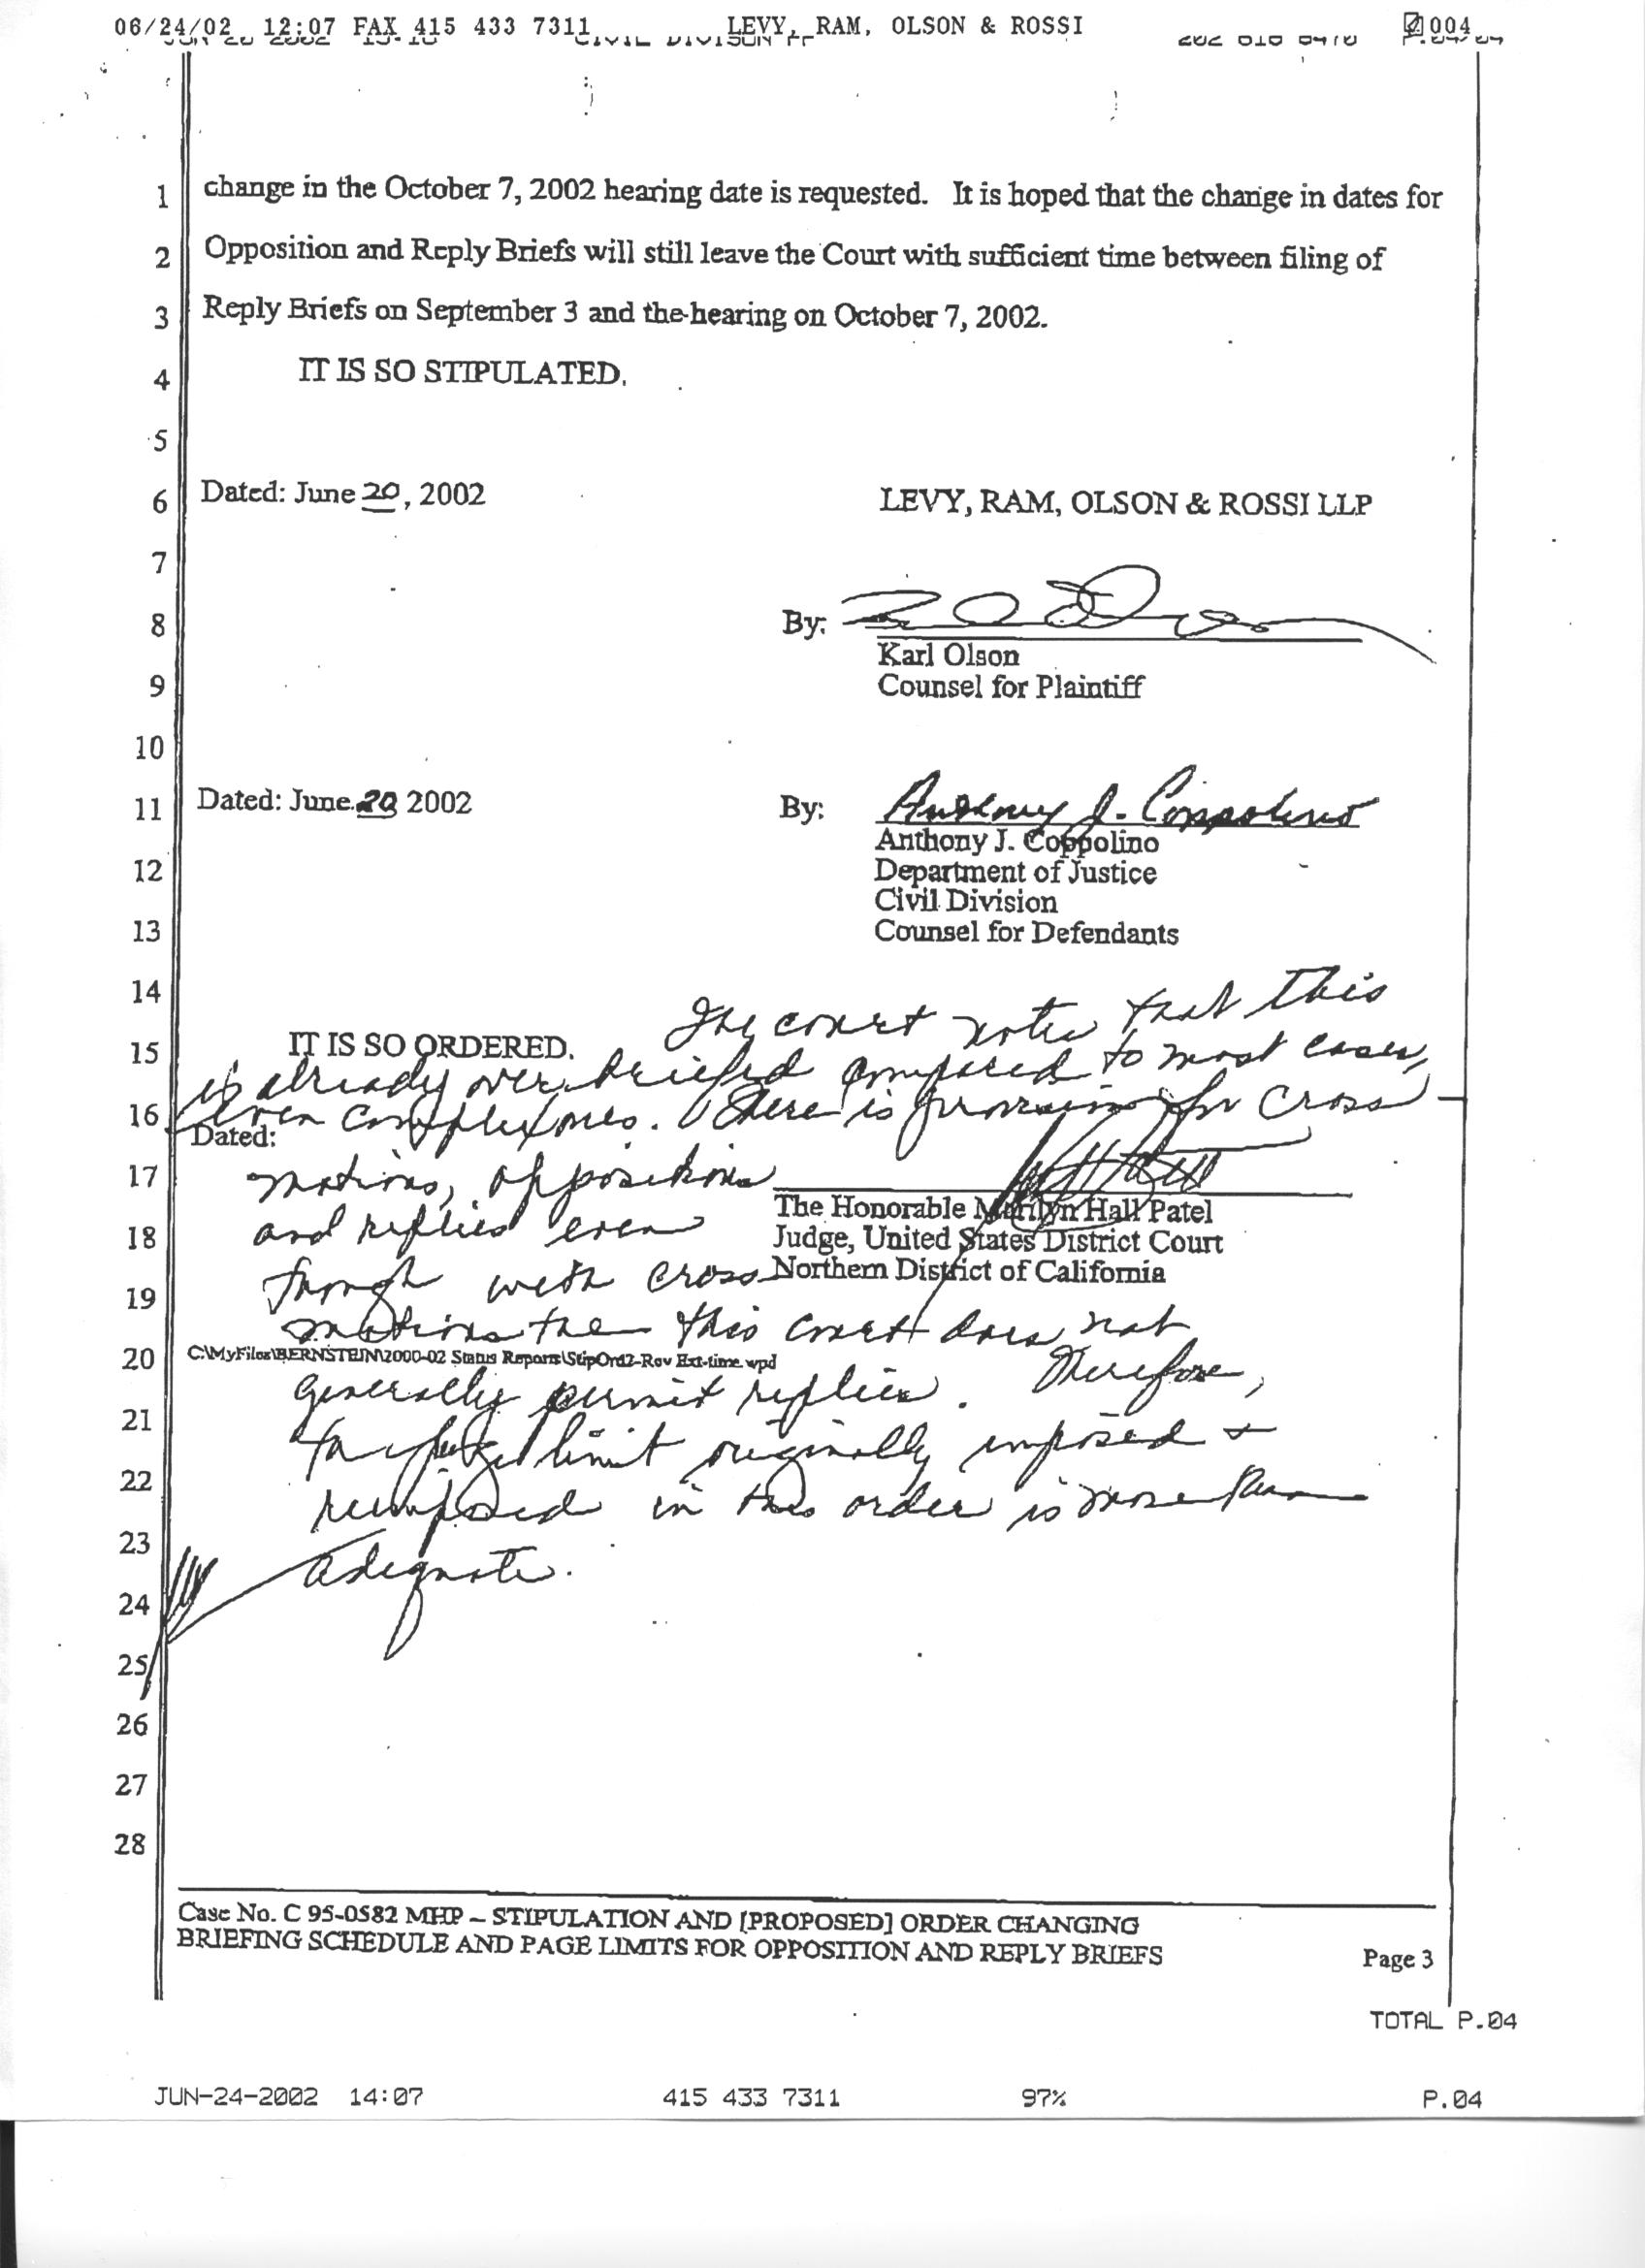 06/24/02 12:07 FAX 415 433 7311 LEVY, RAM, OLSON & ROSSI 004
1 change in the October 7, 2002 hearing date is requested. It is hoped that the change in dates for
2 Opposition and Reply Briefs will still leave the Court with sufficient time between filing of
3 Reply Briefs on September 3 and the hearing on October 7, 2002.
4 IT IS SO STIPULATED.
5
6 Dated: June 20, 2002 LEVY, RAM, OLSON & ROSSI LLP
7
8 By:
Karl Olson
9 Counsel for Plaintiff
10
11 Dated: June 20 2002 By: Anthony J. Coppolino
Anthony J. Coppolino
12 Department of Justice
Civil Division
13 Counsel for Defendants
14 The court notes that this
15 IT IS SO ORDERED.
is already over briefed compared to most cases,
16 even complex ones. There is provision for cross
Dated:
17 motions, oppositions
The Honorable Marilyn Hall Patel
18 and replies even Judge, United States District Court
19 though with cross Northern District of California
motions the this court does not
20 C:\MyFiles\BERNSTEIN\2000-02 Status Reports\StipOrd2-Rev Ext-time.wpd
generally permit replies. Therefore,
21 limit originally imposed +
22 reimposed in this order is more than
23 adequate.
24
25
26
27
28
Case No. C 95-0582 MHP – STIPULATION AND [PROPOSED] ORDER CHANGING
BRIEFING SCHEDULE AND PAGE LIMITS FOR OPPOSITION AND REPLY BRIEFS Page 3
TOTAL P.04
JUN-24-2002 14:07 415 433 7311 97% P.04